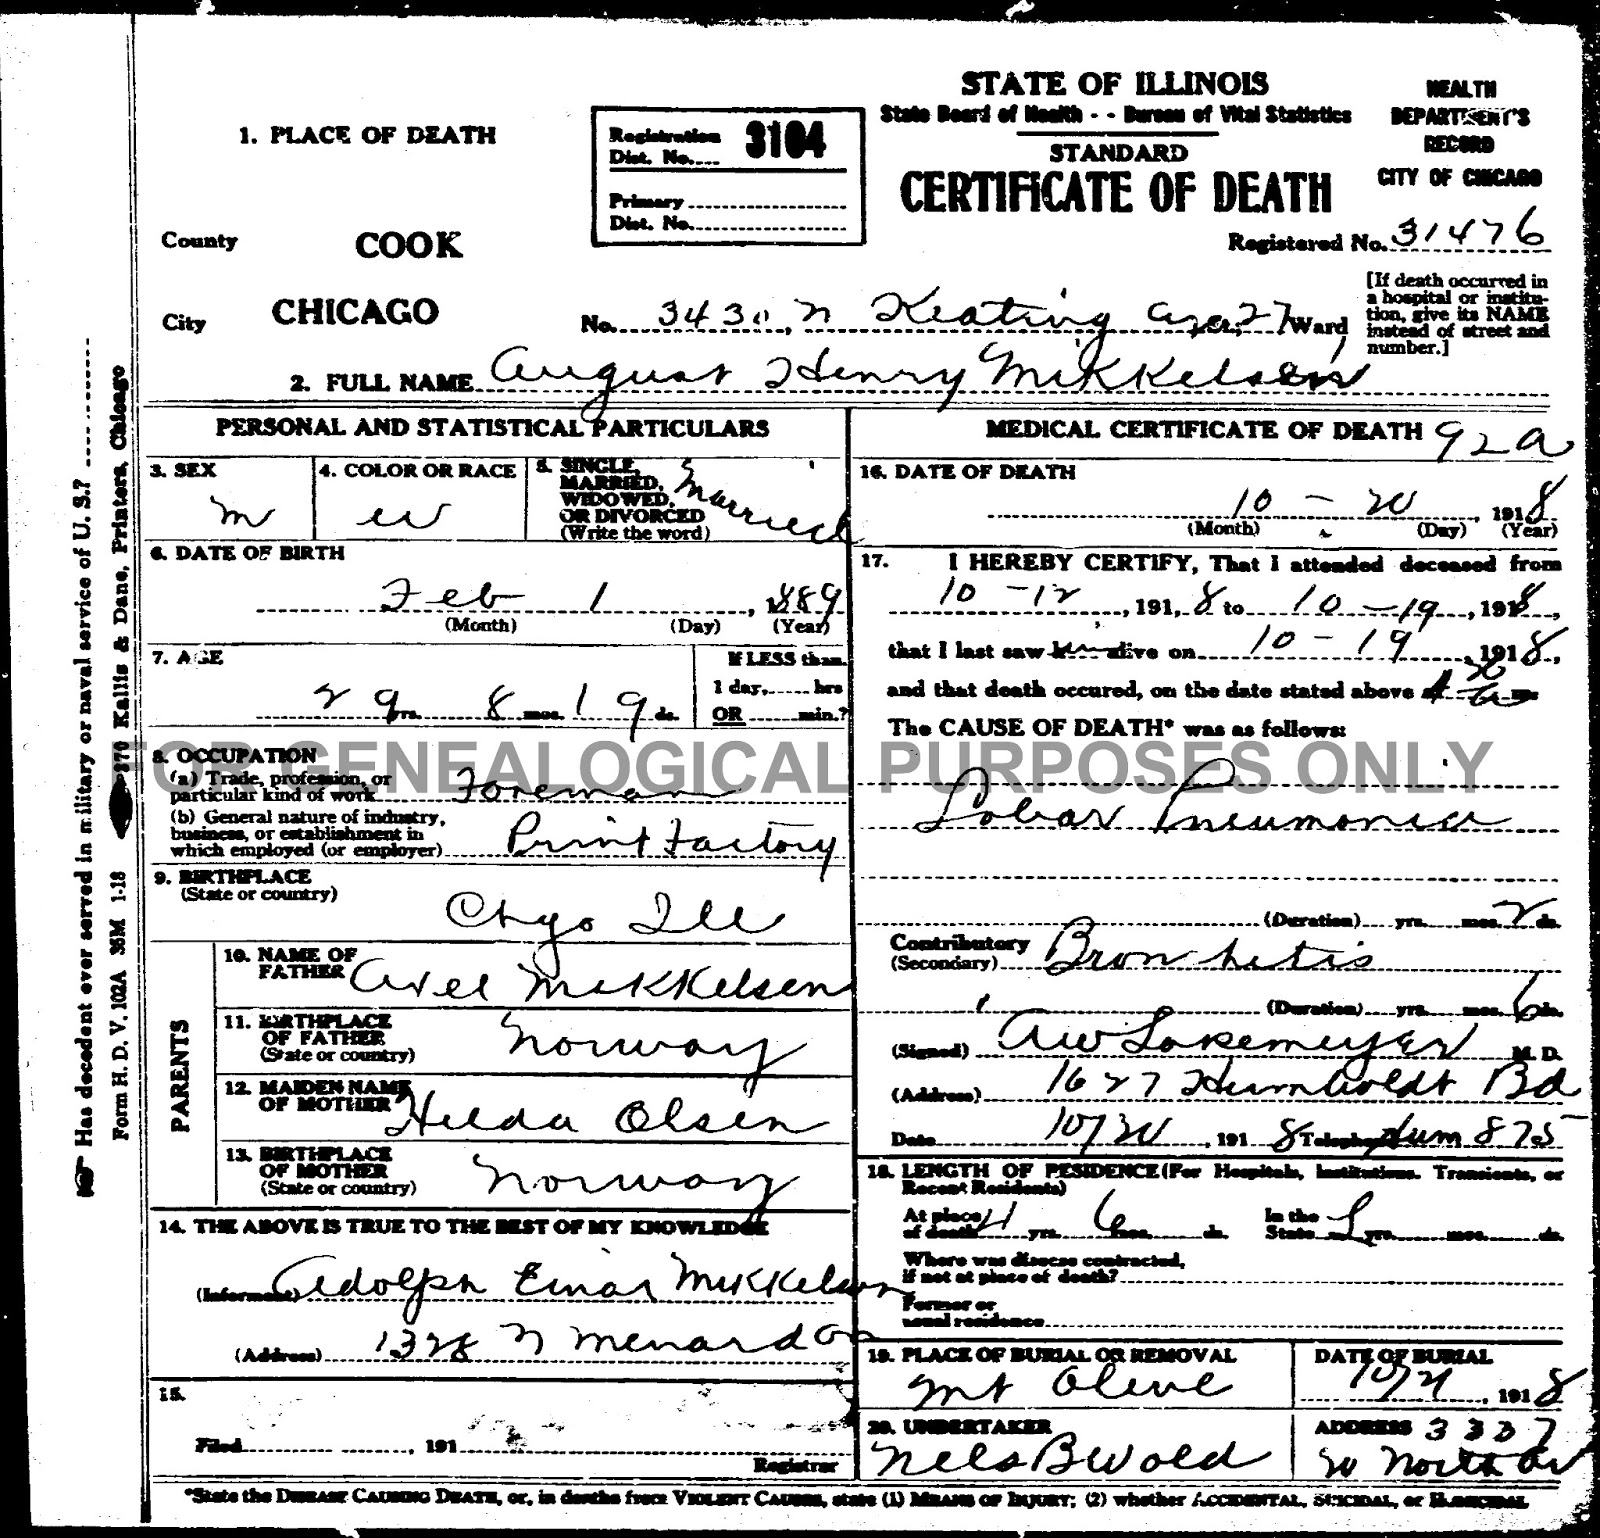 STATE OF ILLINOIS
State Board of Health - - Bureau of Vital Statistics
STANDARD
CERTIFICATE OF DEATH
HEALTH
DEPARTMENT'S
RECORD
CITY OF CHICAGO
Registered No. 31476
1. PLACE OF DEATH
Registration
Dist. No. 3104
Primary
Dist. No.
County COOK
City CHICAGO
No. 3430 N Keating Ave, 27 Ward
[If death occurred in
a hospital or institu-
tion, give its NAME
instead of street and
number.]
2. FULL NAME August Henry Mikkelsen
PERSONAL AND STATISTICAL PARTICULARS
3. SEX
M
4. COLOR OR RACE
W
5. SINGLE,
MARRIED,
WIDOWED,
OR DIVORCED
(Write the word)
Married
6. DATE OF BIRTH
Feb 1, 1889
(Month) (Day) (Year)
7. AGE
29 yrs. 8 mos. 19 ds.
If LESS than
1 day, hrs
OR min.?
8. OCCUPATION
(a) Trade, profession, or
particular kind of work Foreman
(b) General nature of industry,
business, or establishment in
which employed (or employer) Print Factory
9. BIRTHPLACE
(State or country)
Chgo Ill
PARENTS
10. NAME OF
FATHER Axel Mikkelsen
11. BIRTHPLACE
OF FATHER
(State or country) Norway
12. MAIDEN NAME
OF MOTHER Hilda Olsen
13. BIRTHPLACE
OF MOTHER
(State or country) Norway
14. THE ABOVE IS TRUE TO THE BEST OF MY KNOWLEDGE
(Informant) Adolph Einar Mikkelsen
(Address) 1328 N Menard Av
15.
Filed , 191
Registrar
MEDICAL CERTIFICATE OF DEATH 92a
16. DATE OF DEATH
10 - 20, 1918
(Month) (Day) (Year)
17. I HEREBY CERTIFY, That I attended deceased from
10 - 12, 191, 8 to 10 - 19, 1918,
that I last saw him alive on 10 - 19, 1918,
and that death occured, on the date stated above at
The CAUSE OF DEATH* was as follows:
Lobar Pneumonia
(Duration) yrs. mos. 2 ds.
Contributory
(Secondary) Bronchitis
(Duration) yrs. mos. 6 ds.
(Signed) M. D.
(Address) 1627 Humboldt Bd
Date 10/20, 1918 Telephone Hum 875
18. LENGTH OF RESIDENCE (For Hospitals, Institutions, Transients, or
Recent Residents)
At place
of death 4 yrs. 6 mos. ds.
In the
State L yrs. mos. ds.
Where was disease contracted,
if not at place of death?
Former or
usual residence
19. PLACE OF BURIAL OR REMOVAL
Mt Olive
DATE OF BURIAL
10/21, 1918
20. UNDERTAKER
Nels B Wold
ADDRESS 3337
W North Av
*State the DISEASE CAUSING DEATH, or, in deaths from VIOLENT CAUSES, state (1) MEANS OF INJURY; (2) whether ACCIDENTAL, SUICIDAL, or HOMICIDAL
Has decedent ever served in military or naval service of U. S.?
Form H. D. V. 102A 35M 1-18 870 Kallis & Dane, Printers, Chicago
FOR GENEALOGICAL PURPOSES ONLY